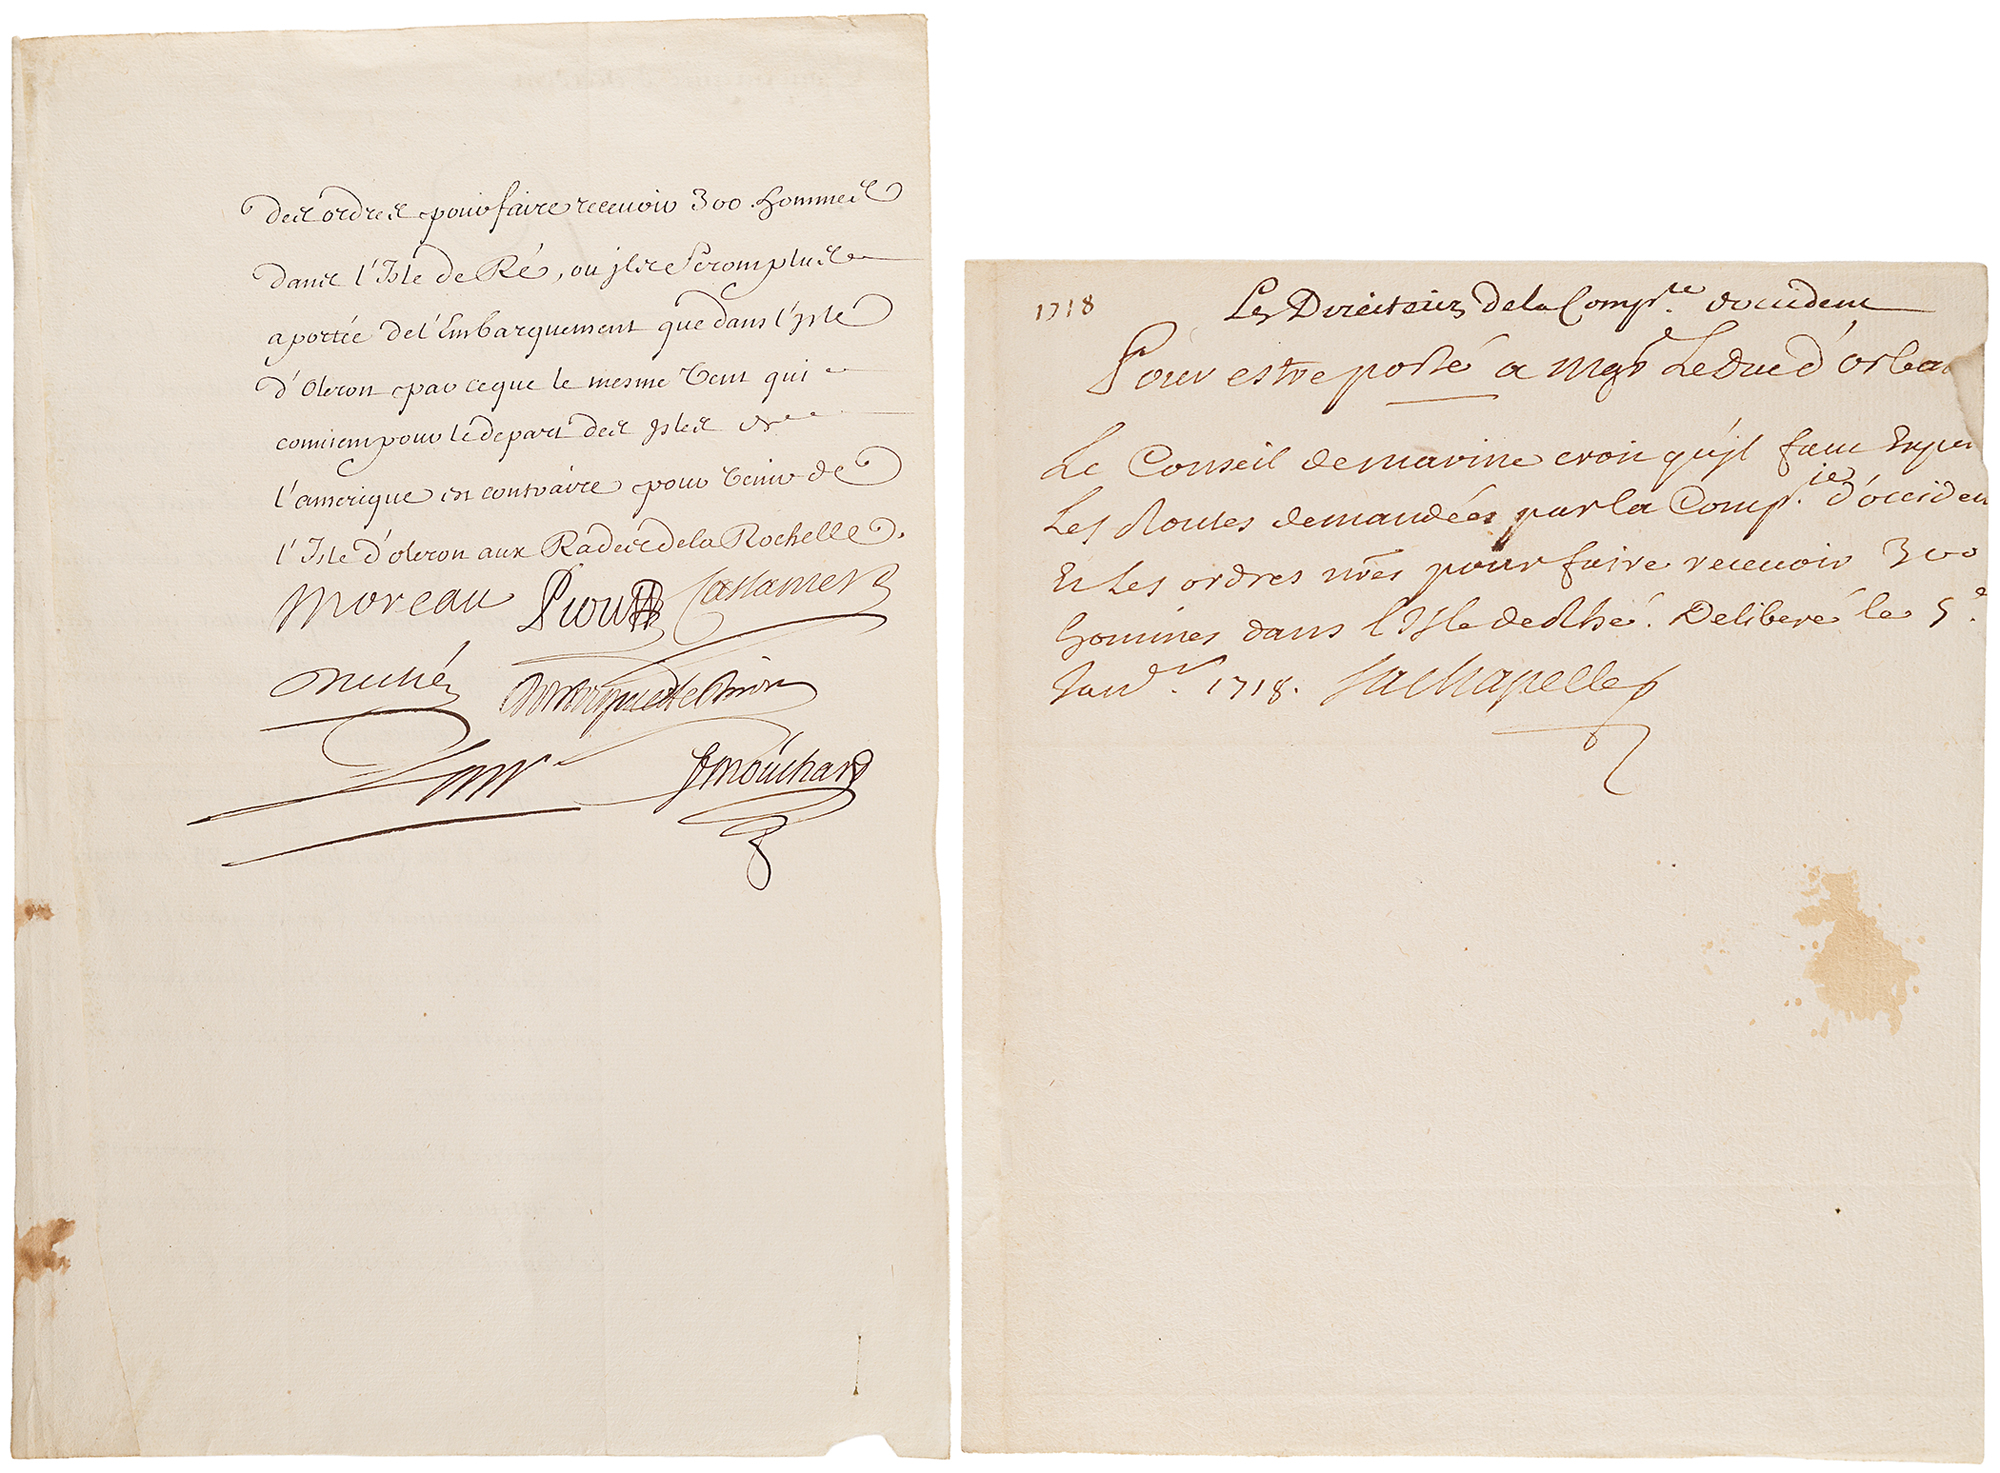 des ordres pour faire recevoir 300 hommes
dans l'Isle de Ré, ou jls seront plus
a portée de l'Embarquement que dans l'jsle
d'Oleron par ceque le mesme vent qui
convient pour le depart des jsles de
l'amerique est contraire pour venir de
l'Isle d'oleron aux Rades de la Rochelle.
Moreau Piou Castanier
Duché
Law f mouchard
1718
Les Directeurs de la Comp.ie doccident
Pour estre porté a Mgr Le Duc d'orlea
Le Conseil de marine croit qu'jl faut Exper
Les Routes demandées par la Comp.ie d'occiden
Et les ordres nres pour faire recevoir 300
hommes dans l'Isle de Rhé. Deliberé le 5.e
Janv.r 1718. LaChapelle